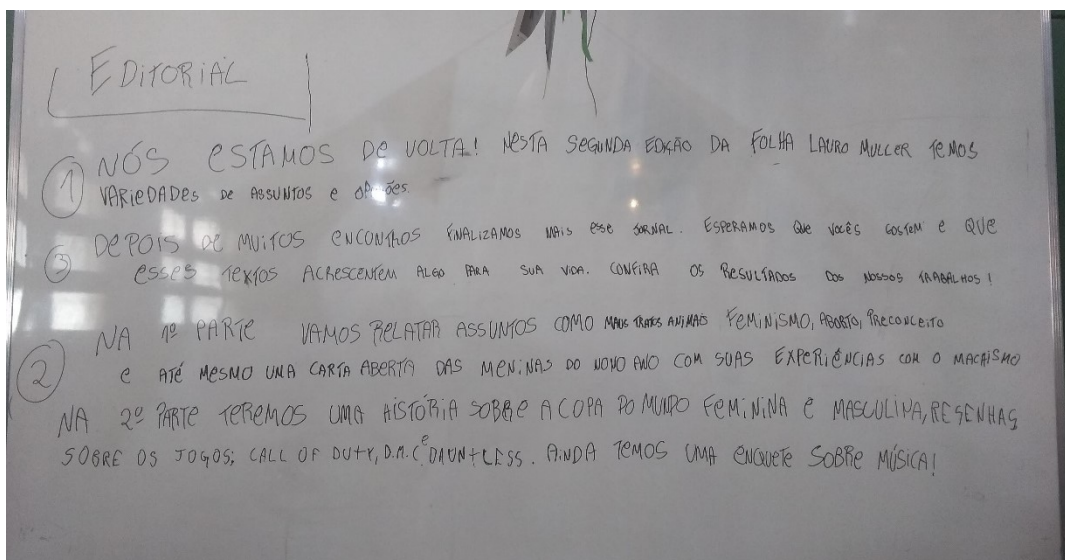 EDITORIAL
1 NÓS ESTAMOS DE VOLTA! NESTA SEGUNDA EDIÇÃO DA FOLHA LAURO MULLER TEMOS
VARIEDADES DE ASSUNTOS E OPÇÕES.
3 DEPOIS DE MUITOS ENCONTROS FINALIZAMOS MAIS ESSE JORNAL. ESPERAMOS QUE VOCÊS GOSTEM E QUE
ESSES TEXTOS ACRESCENTEM ALGO PARA SUA VIDA. CONFIRA OS RESULTADOS DOS NOSSOS TRABALHOS!
NA 1º PARTE VAMOS RELATAR ASSUNTOS COMO MAUS TRATOS ANIMAIS FEMINISMO, ABORTO, PRECONCEITO
2 E ATÉ MESMO UMA CARTA ABERTA DAS MENINAS DO NONO ANO COM SUAS EXPERIÊNCIAS COM O MACHISMO
NA 2º PARTE TEREMOS UMA HISTÓRIA SOBRE A COPA DO MUNDO FEMININA E MASCULINA, RESENHAS
SOBRE OS JOGOS: CALL OF DUTY, D.M.C e DAUNTLESS. AINDA TEMOS UMA ENQUETE SOBRE MÚSICA!